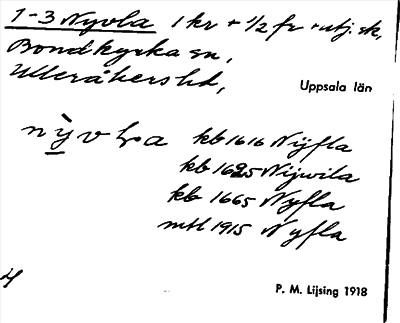 1-3 Nyvla 1 kr + 1/2 fr + utj. sk,
Bondkyrka sn,
Ulleråkers hd,
Uppsala län
kb 1616 Nÿfla
kb 1625 Nijwila
kb 1665 Nyfla
mtl 1915 Nyfla
P. M. Lijsing 1918